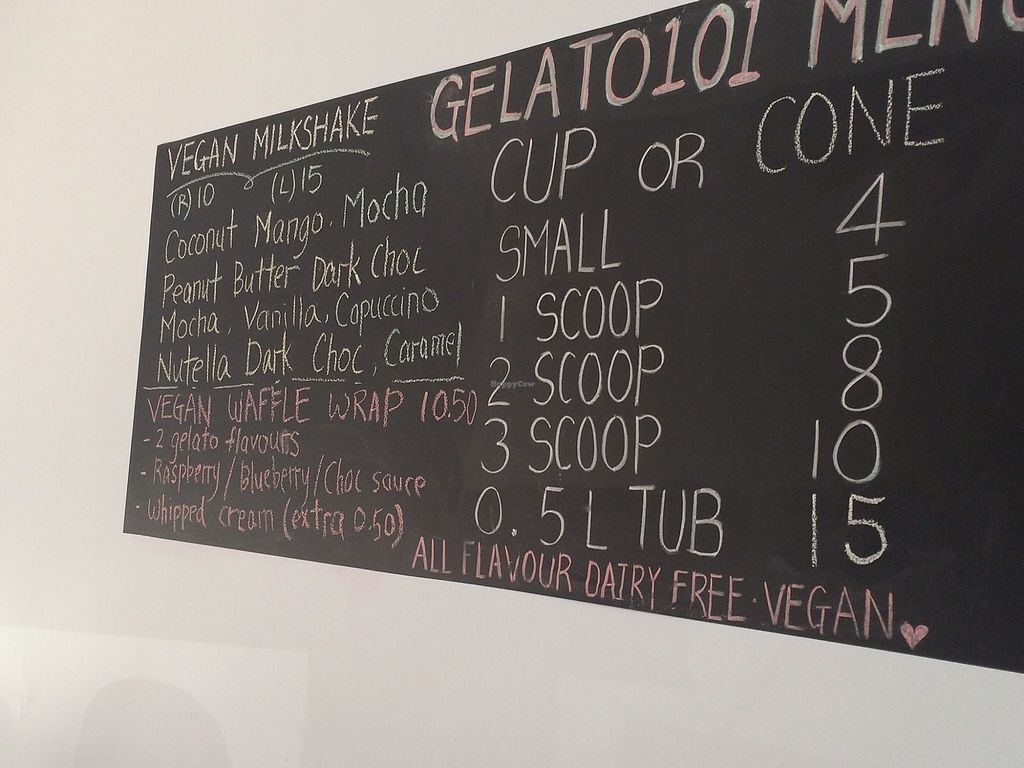 VEGAN MILKSHAKE
(R) 10 (L) 15
Coconut Mango, Mocha
Peanut Butter Dark Choc
Mocha, Vanilla, Capuccino
Nutella Dark Choc, Caramel
VEGAN WAFFLE WRAP 10.50
- 2 gelato flavours
- Raspberry/Blueberry/Choc sauce
- Whipped cream (extra 0.50)
GELATO101 MENU
CUP OR CONE
SMALL 4
1 SCOOP 5
2 SCOOP 8
3 SCOOP 10
0.5L TUB 15
ALL FLAVOUR DAIRY FREE · VEGAN
HappyCow